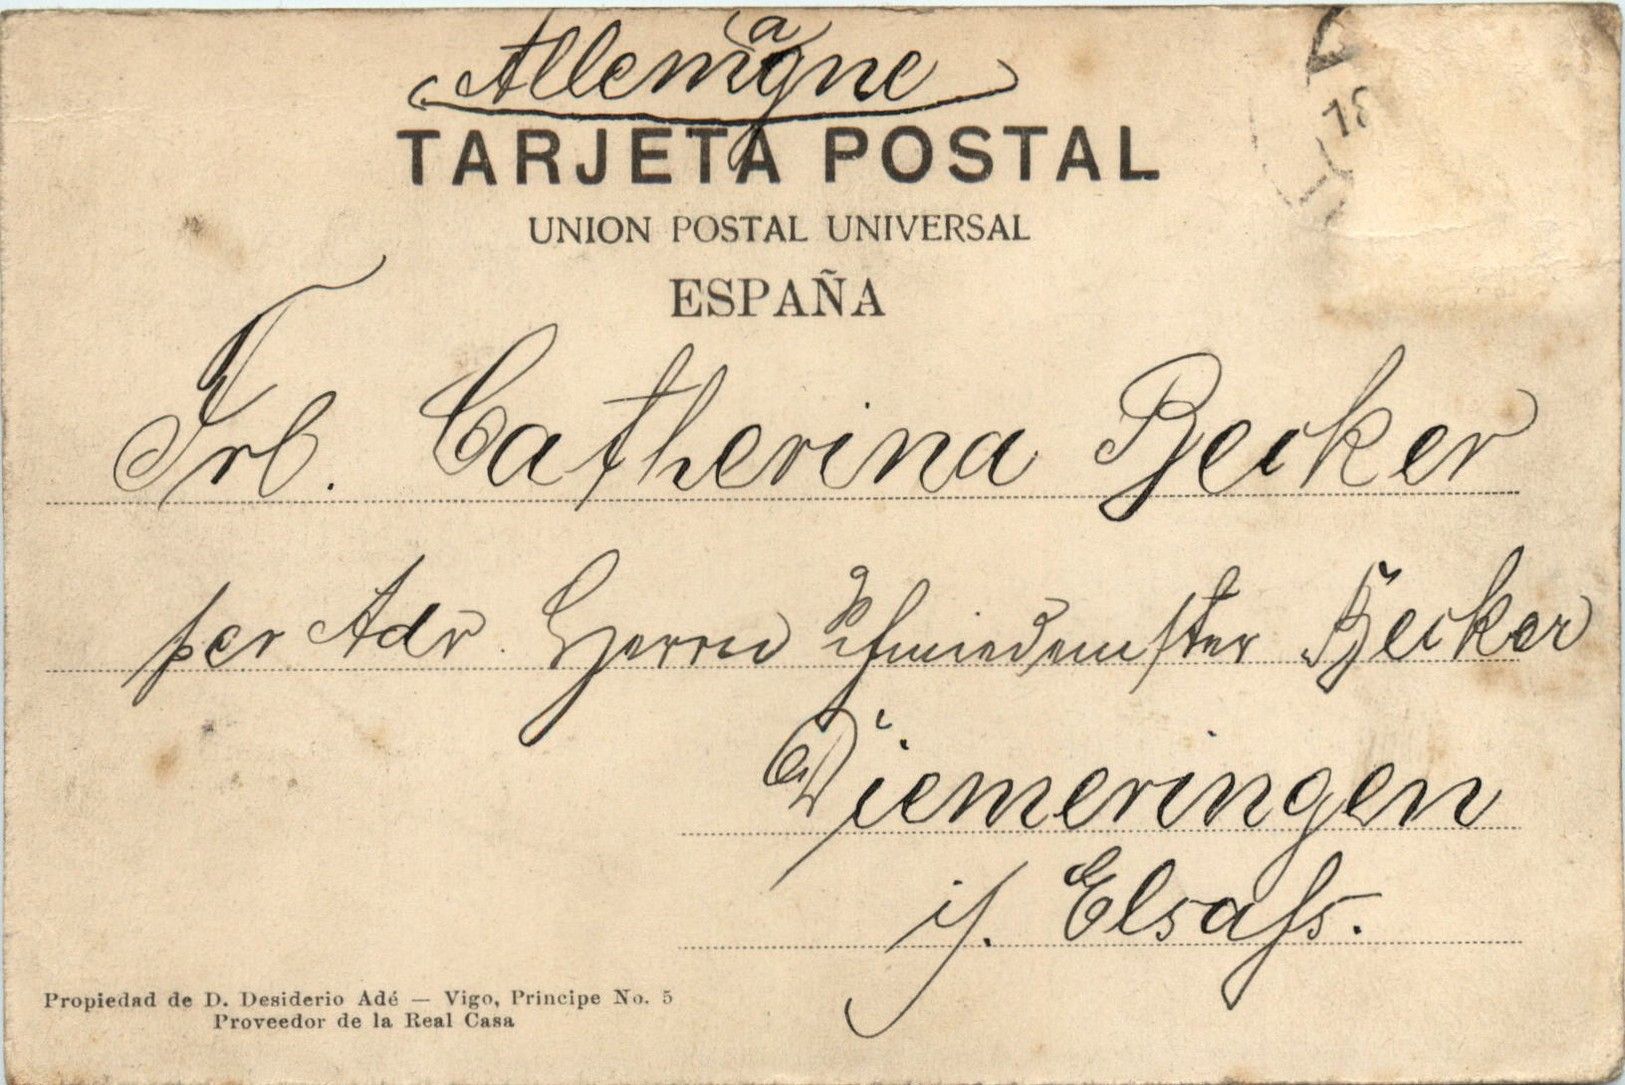 Allemagne
TARJETA POSTAL
UNION POSTAL UNIVERSAL
ESPAÑA
18
Frl. Catherina Becker
per Adr. Herrn Schmiedemster Becker
Diemeringen
i/. Elsaſs.
Propiedad de D. Desiderio Adé — Vigo, Principe No. 5
Proveedor de la Real Casa